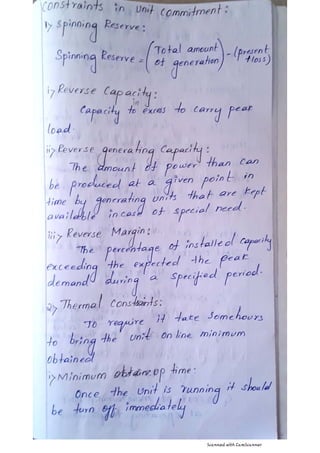 Constraints in unit commitment:
1, Spinning Reserve:
Spinning Reserve = (Total amount of generation) - (present + loss)
i, Reverse Capacity:
Capacity to in exess to carry peak
load.
ii, Reverse generating Capacity:
The amount of power than can
be produced at a given point in
time by generating units that are kept
available incase of special need.
iii, Reverse Margin:
The percentage of installed capacity
exceeding the expected the peak
demand during a specified period.
2, Thermal Constraints:
To require it take somehours
to bring the unit online minimum
obtained
i, Minimum up time:
Once the unit is running it should
be turn off immediately
Scanned with CamScanner